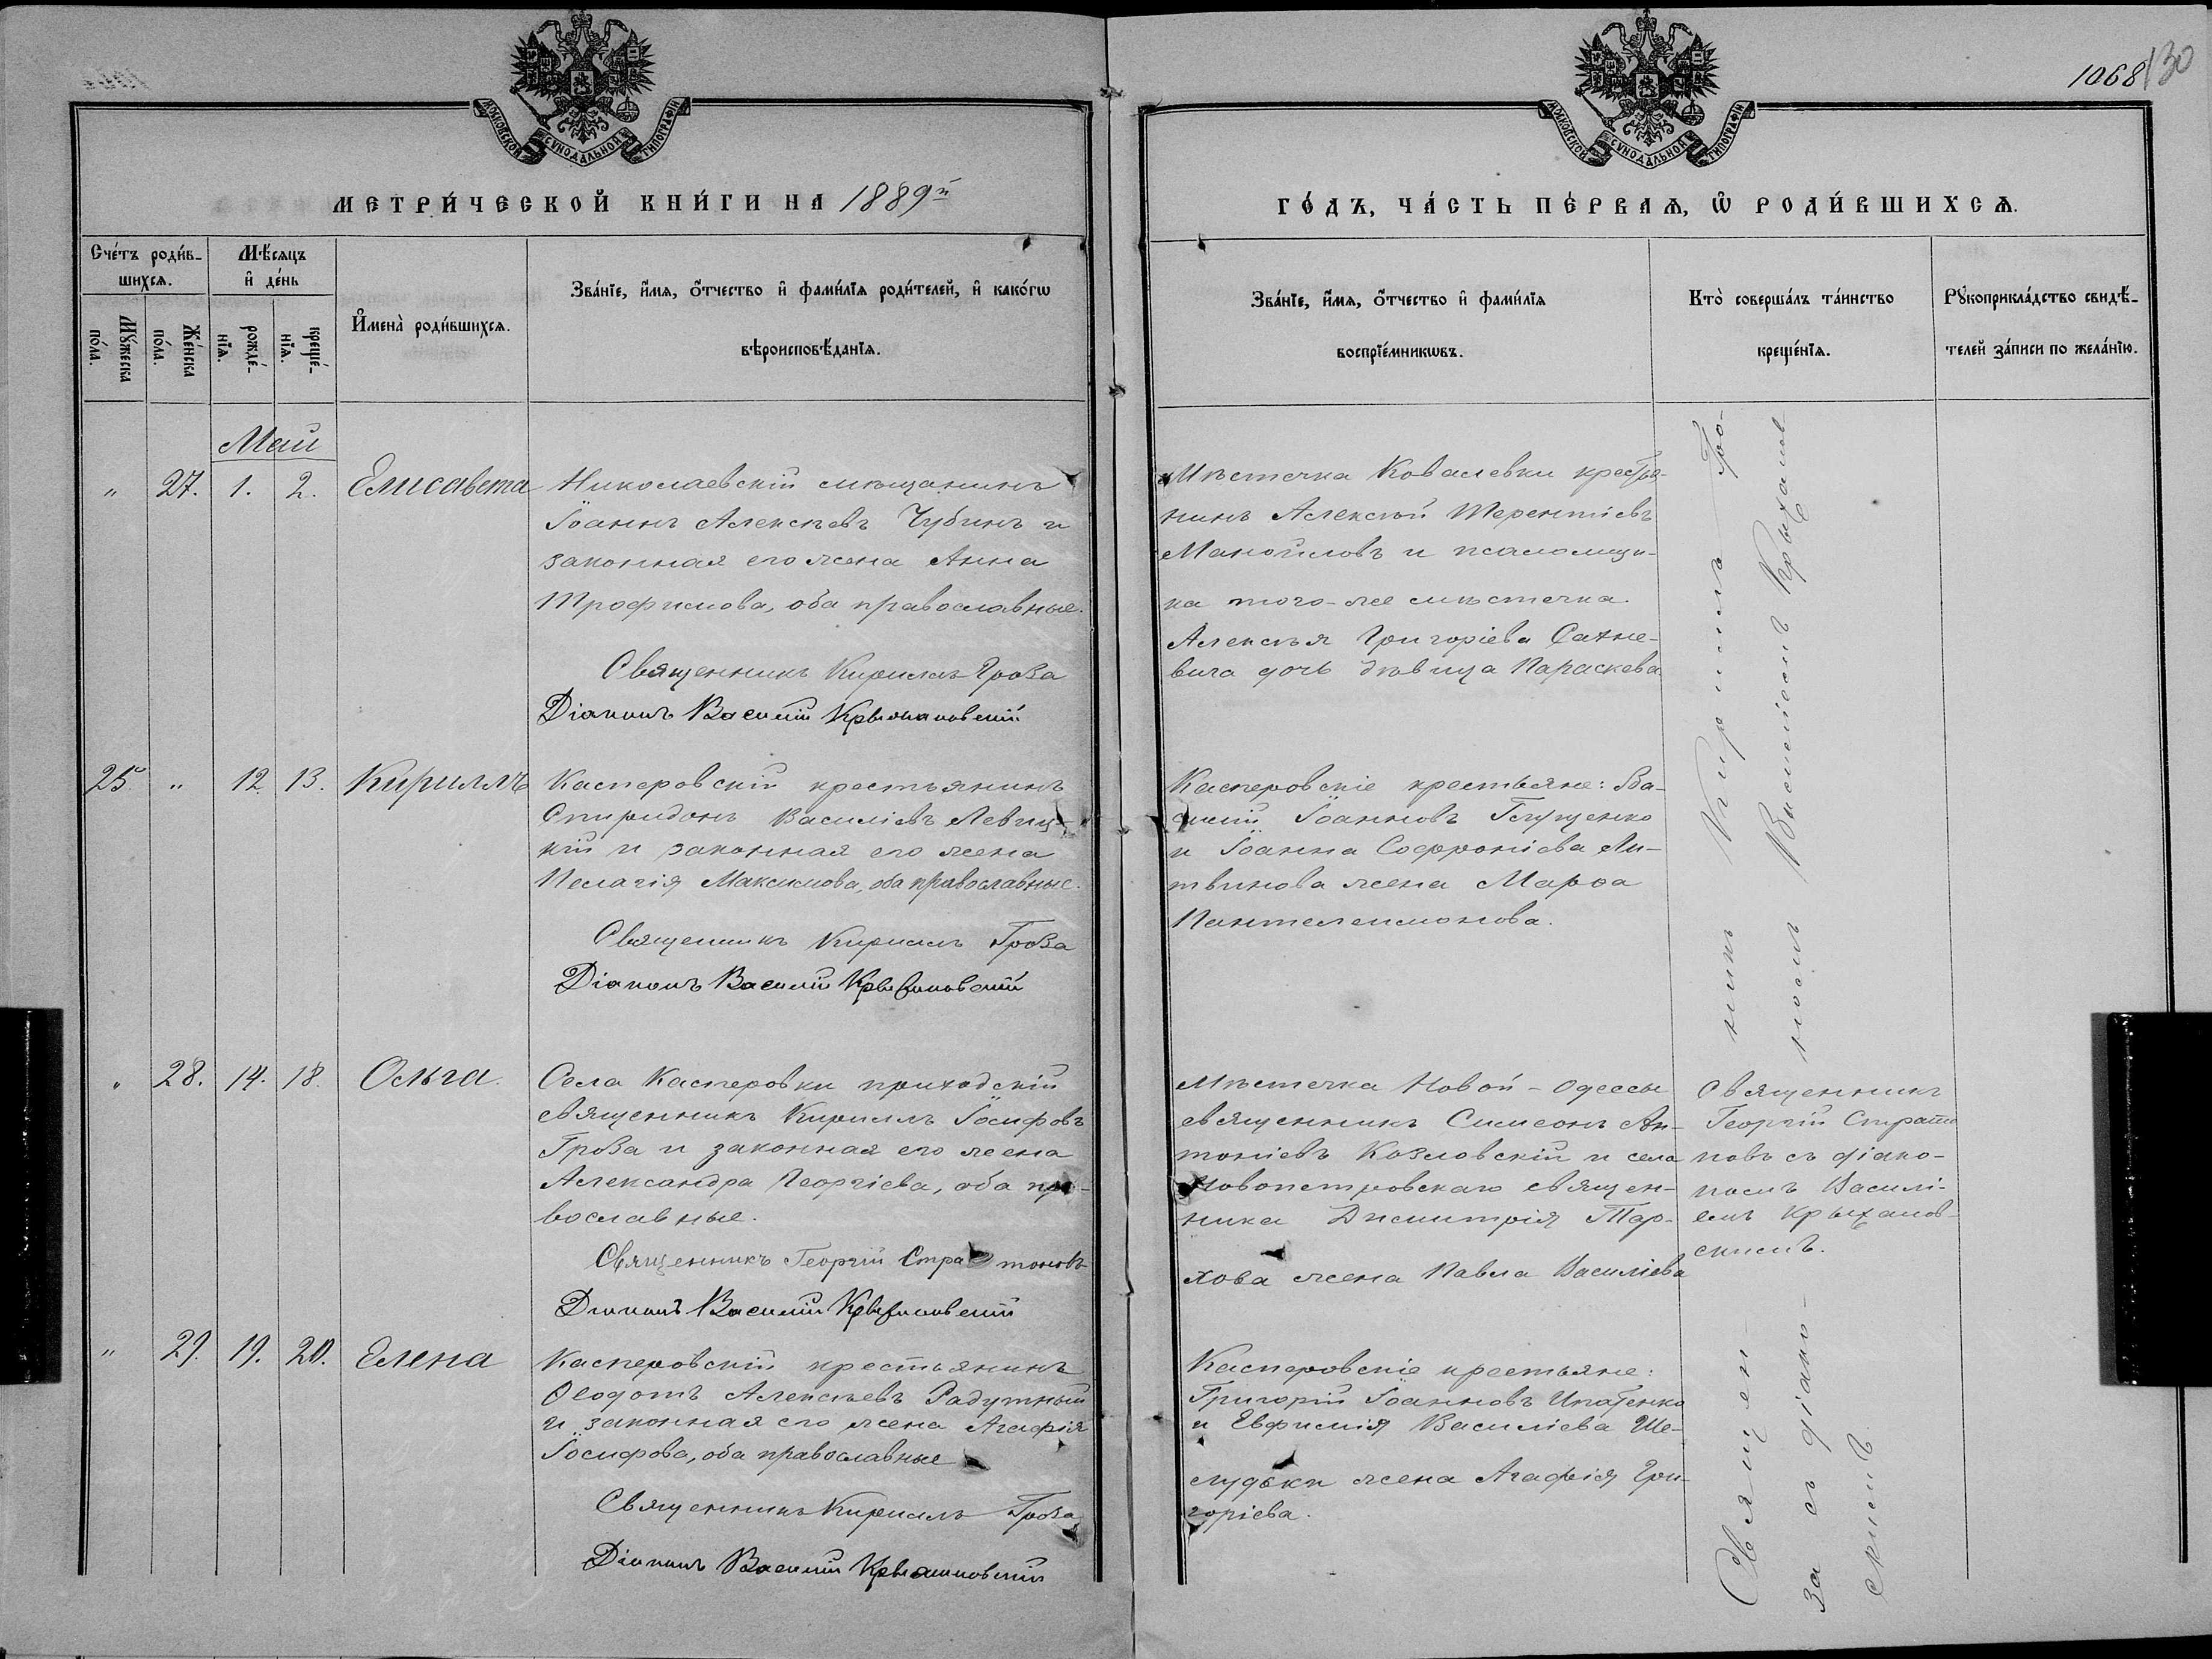 1068
130
МОСКОВСКОЙ СѴНОДАЛЬНОЙ ТИПОГРАФІИ
МОСКОВСКОЙ СѴНОДАЛЬНОЙ ТИПОГРАФІИ
МЕТРИ́ЧЕСКОЙ КНИ́ГИ НА 1889й
ГО́ДЪ, ЧА́СТЬ ПЕ́РВАѦ, Ѡ҆ РОДИ́ВШИХСѦ.
Сче́тъ роди́в-
шихсѧ.
Мꙋ́жеска
по́ла.
Же́нска
по́ла.
Мѣ́сѧцъ
и҆ де́нь
рожде́-
нїѧ.
креще́-
нїѧ.
И҆мена̀ роди́вшихсѧ.
Зва́нїе, и҆́мѧ, ѻ҆́тчество и҆ фами́лїѧ роди́телей, и҆ како́гѡ
вѣроисповѣ́данїѧ.
Зва́нїе, и҆́мѧ, ѻ҆́тчество и҆ фами́лїѧ
воспрїе́мникѡвъ.
Кто̀ соверша́лъ та́инство
креще́нїѧ.
Рꙋкоприкла́дство свидѣ́-
телей за́писи по жела́нїю.
Май
" 27. 1. 2. Елисавета
Николаевскій мѣщанинъ
Іоаннъ Алексѣевъ Чубинъ и
законная его жена Анна
Трофимова, оба православные.
Священникъ Кириллъ Гроза
Діаконъ Василій Крыжановскій
Мѣстечка Ковалевки крестья-
нинъ Алексѣй Терентіевъ
Манойловъ и псаломщи-
ка того-же мѣстечка
Алексѣя Григоріева Сахне-
вича дочь дѣвица Параскева
25. " 12. 13. Кириллъ
Касперовскій крестьянинъ
Спиридонъ Василіевъ Левиц-
кій и законная его жена
Пелагія Максимова, оба православные.
Священникъ Кириллъ Гроза
Діаконъ Василій Крыжановскій
Касперовскіе крестьяне: Ва-
силій Іоанновъ
и Іоанна Софроніева Ли-
твинова жена Марѳа
Пантелеимонова.
" 28. 14. 18. Ольга.
Села Касперовки приходскій
священникъ Кириллъ Іосифовъ
Гроза и законная его жена
Александра Георгіева, оба пра-
вославные.
Священникъ Георгій Стратоновъ
Діаконъ Василій Крыжановскій
Мѣстечка Новой-Одессы
священникъ Симеонъ Ан-
тоніевъ Козловскій и села
Новопетровскаго священ-
ника Димитрія Тар-
хова жена Павла Василіева
Священникъ
Георгій Страто
новъ съ діако-
номъ Василі-
емъ Крыжанов-
скимъ.
" 29. 19. 20. Елена
Касперовскій крестьянинъ
Ѳеодотъ Алексѣевъ Радутный
и законная его жена Агафія
Іосифова, оба православные
Священникъ Кириллъ Гроза
Діаконъ Василій Крыжановскій
Касперовскіе крестьяне:
Григорій Іоанновъ Ипатенко
и Евфимія Василіева Ше-
лудьки жена Агафія Гри-
горіева.
Священ-никъ Кириллъ Гро-
за съ діако-номъ Василіемъ Крыжанов-
скимъ.